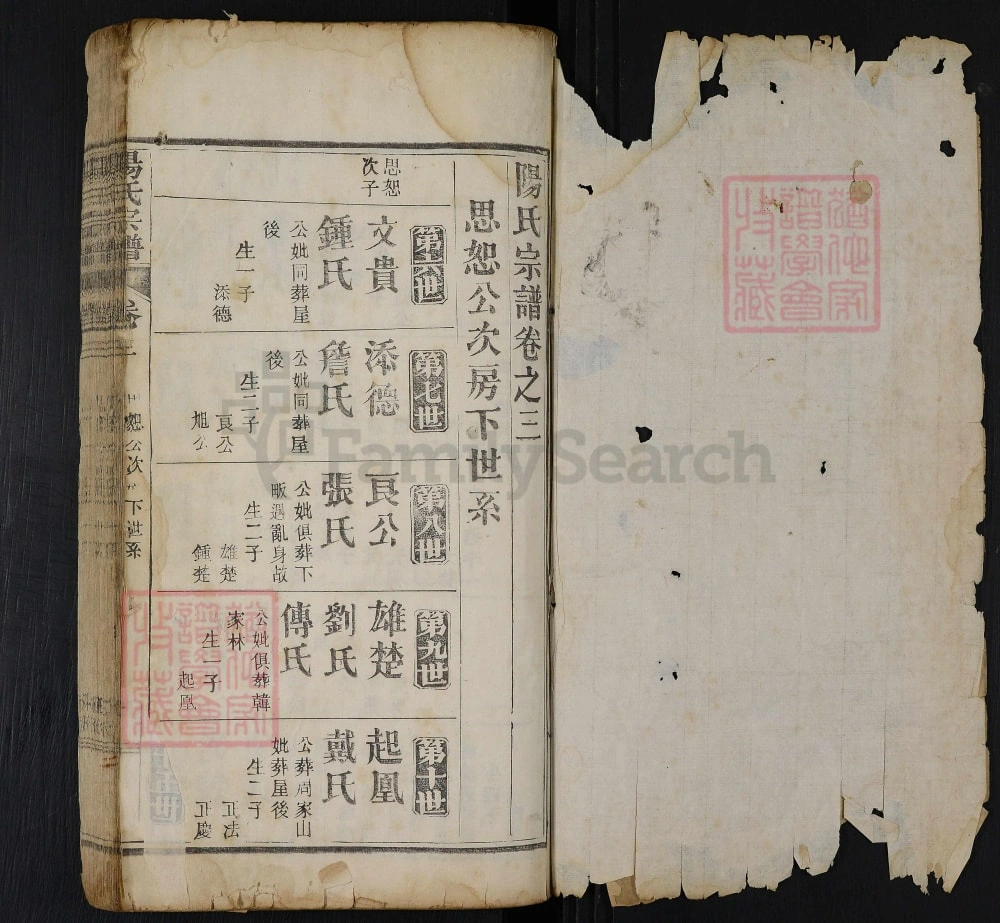 陽氏宗譜卷之三
思恕公次房下世系
第六世
思恕
次子
文貴
鍾氏
公妣同葬屋
後
生一子
添德
第七世
添德
詹氏
公妣同葬屋
後
生二子
良公
旭公
第八世
良公
張氏
公妣俱葬下
畈遇亂身故
生二子
雄楚
鍾楚
第九世
雄楚
劉氏
傅氏
公妣俱葬韓
家林
生一子
起鳳
第十世
起鳳
戴氏
公葬周家山
妣葬屋後
生二子
正法
正慶
陽氏宗譜
下世系
FamilySearch
譜學會